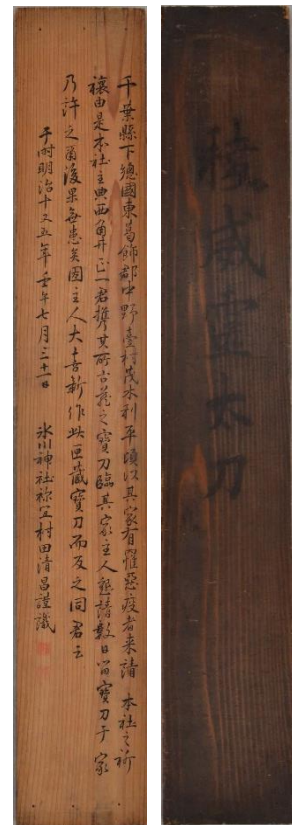 稜威靈太刀
千葉縣下總國東葛飾郡中野臺村茂木利平頃以其家有罹惡疫者来請 本社之祈
禳由是本社主典西角井正一君携其所古蔵之寶刀臨其家主人懇請數日留寶刀于家
乃許之爾後果無恙矣因主人大喜新作此匣蔵寶刀而反之同君云
于時明治十又五年壬午七月三十一日 氷川神社祢宜村田清昌謹識